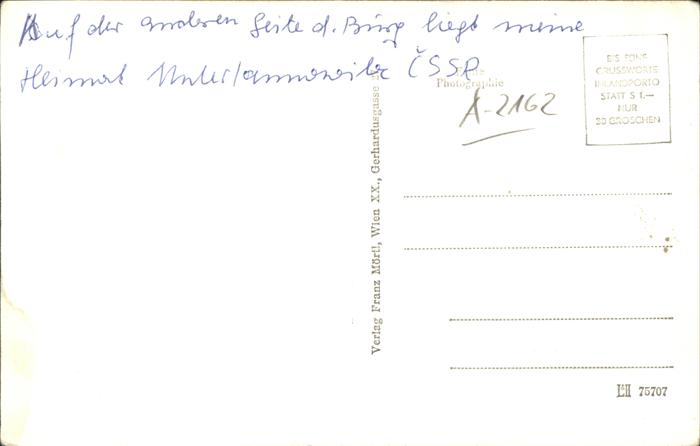 Auf der anderen Seite d. Burg liegt meine
Heimat Untertannowitz ČSSR
Echte
Photographie
A-2162
BIS FÜNF
GRUSSWORTE
INLANDPORTO
STATT S 1.—
NUR
30 GROSCHEN
Verlag Franz Mörtl, Wien XX., Gerhardusgasse
75707